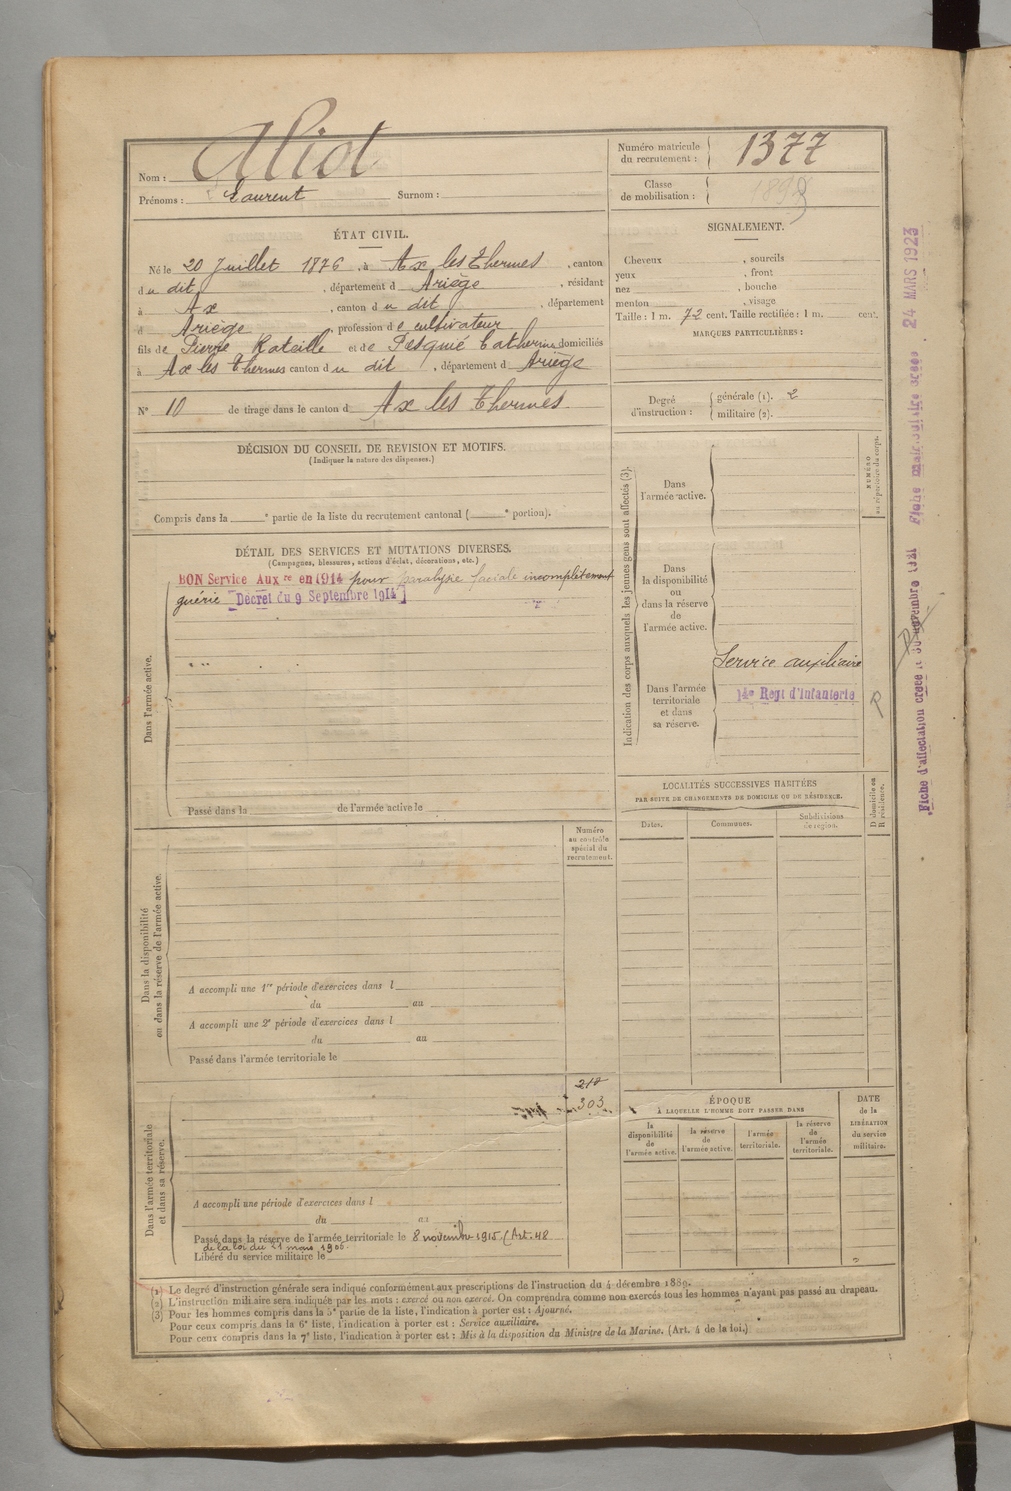 Nom : Aliot
Prénoms : Laurent Surnom :
Numéro matricule
du recrutement : 1377
Classe
de mobilisation : 189
ÉTAT CIVIL.
Né le 20 Juillet 1876, à Ax les Thermes, canton
du dit, département d Ariège, résidant
à Ax, canton du dit, département
d Ariège, profession de cultivateur
fils de Pierre Rataille et de Pesquié Catherine domiciliés
à Ax les Thermes canton du dit, département d Ariège
N° 10 de tirage dans le canton d Ax les Thermes
SIGNALEMENT.
Cheveux , sourcils
yeux , front
nez , bouche
menton , visage
Taille : 1 m. 72 cent. Taille rectifiée : 1 m. cent.
MARQUES PARTICULIÈRES :
Degré
d'instruction :
générale (1). 2
militaire (2).
DÉCISION DU CONSEIL DE REVISION ET MOTIFS.
(Indiquer la nature des dispenses.)
Compris dans la e partie de la liste du recrutement cantonal ( e portion).
DÉTAIL DES SERVICES ET MUTATIONS DIVERSES.
(Campagnes, blessures, actions d'éclat, décorations, etc.)
BON Service Aux.re en 1914 pour paralysie faciale incomplètement
guérie [Décret du 9 Septembre 1914]
Dans l'armée active.
Passé dans la de l'armée active le
Indication des corps auxquels les jeunes gens sont affectés (3).
Dans
l'armée active.
Dans
la disponibilité
ou
dans la réserve
de
l'armée active.
Dans l'armée
territoriale
et dans
sa réserve.
Service auxiliaire
14e Regt d'Infanterie
NUMÉRO
au répertoire du corps.
R
LOCALITÉS SUCCESSIVES HABITÉES
PAR SUITE DE CHANGEMENTS DE DOMICILE OU DE RÉSIDENCE.
Dates. Communes. Subdivisions
de région.
D domicile ou
R résidence.
Numéro
au contrôle
spécial du
recrutement.
Dans la disponibilité
ou dans la réserve de l'armée active.
A accompli une 1re période d'exercices dans l
du au
A accompli une 2e période d'exercices dans l
du au
Passé dans l'armée territoriale le
303
Dans l'armée territoriale
et dans sa réserve.
A accompli une période d'exercices dans l
du au
Passé dans la réserve de l'armée territoriale le 8 novembre 1915 (Art. 48
de la loi du 21 mars 1905
Libéré du service militaire le
ÉPOQUE
À LAQUELLE L'HOMME DOIT PASSER DANS
la
disponibilité
de
l'armée active.
la réserve
de
l'armée active.
l'armée
territoriale.
la réserve
de
l'armée
territoriale.
DATE
de la
LIBÉRATION
du service
militaire.
(1) Le degré d'instruction générale sera indiqué conformément aux prescriptions de l'instruction du 4 décembre 1889.
(2) L'instruction militaire sera indiquée par les mots : exercé ou non exercé. On comprendra comme non exercés tous les hommes n'ayant pas passé au drapeau.
(3) Pour les hommes compris dans la 5e partie de la liste, l'indication à porter est : Ajourné.
Pour ceux compris dans la 6e liste, l'indication à porter est : Service auxiliaire.
Pour ceux compris dans la 7e liste, l'indication à porter est : Mis à la disposition du Ministre de la Marine. (Art. 4 de la loi.)
Fiche d'affectation créée le 30 novembre 1921 Fiche matriculaire créée 24 MARS 1923